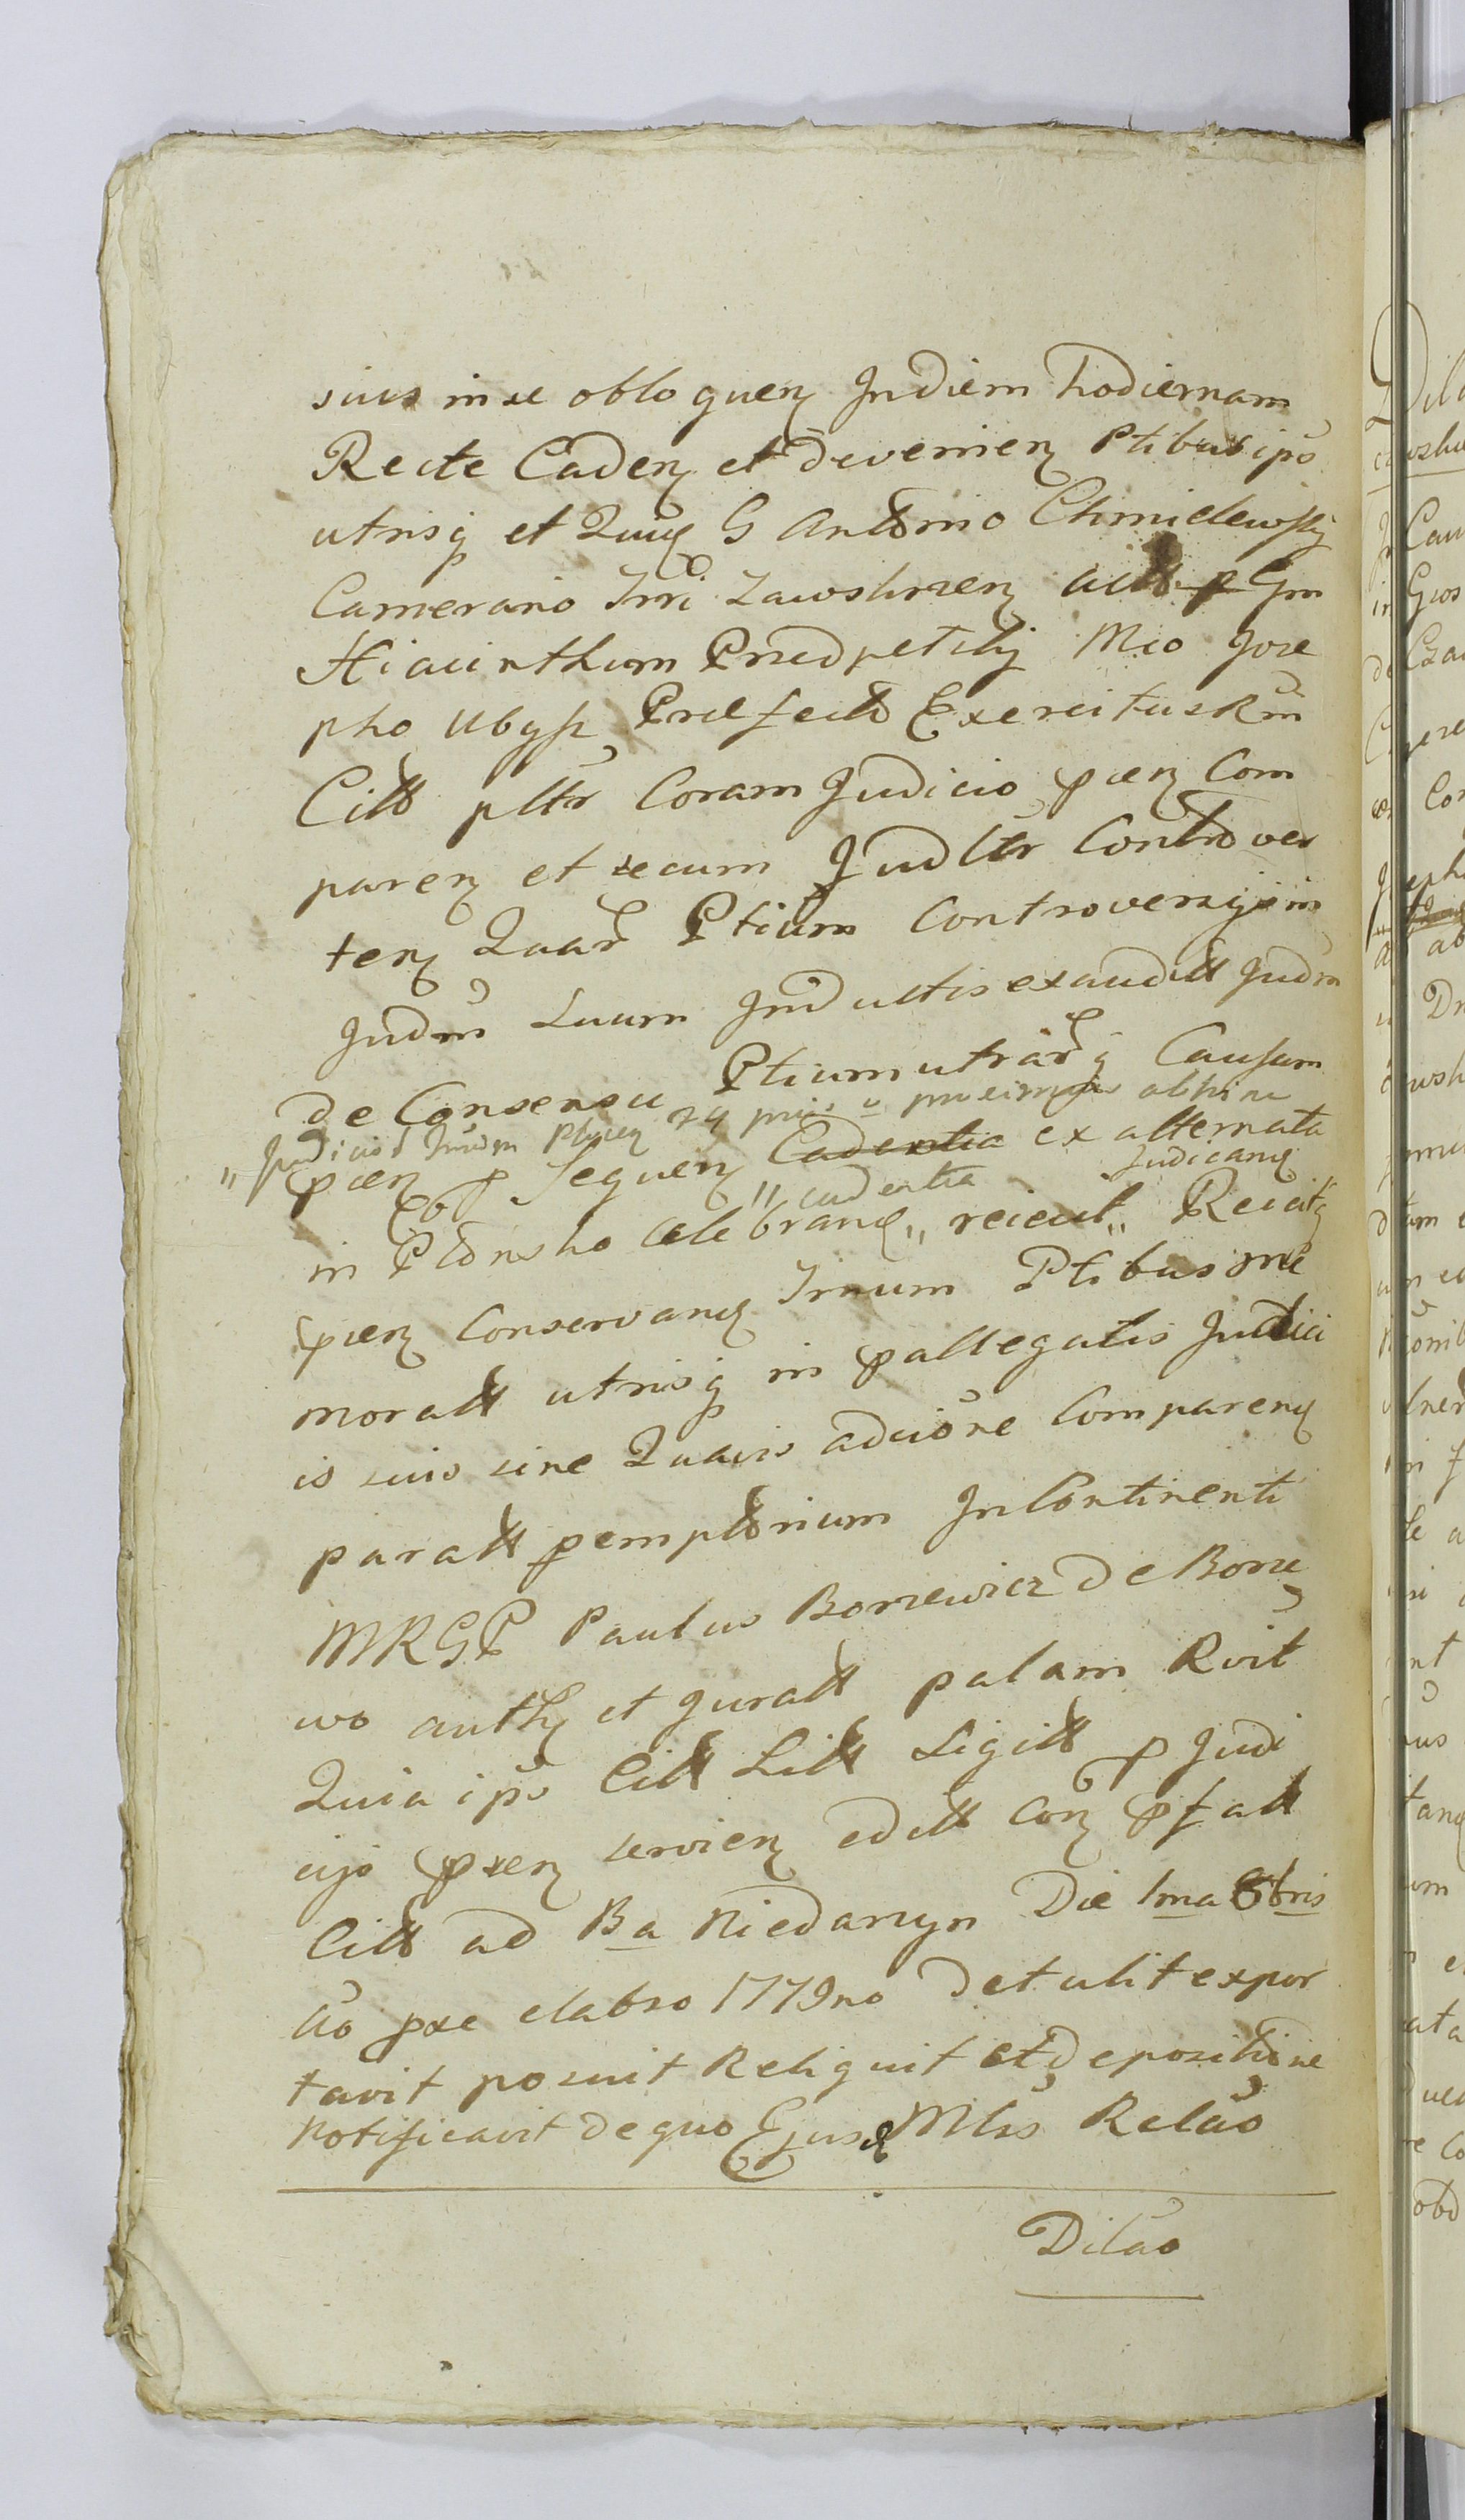 suis in se obloquen Jndiem hodiernam
Recte Caden et devenien Ptibus ipo
utrisq et Quiq G Antonio Chmielewsky
Camerario Trri Zawskrzen actt p Gm
Hiacinthum Przedpelsky Mco Jose
pho Ubysz Praefecto Exercitus Rm
Citt pltr Coram Judicio psen Com
paren et secum Judltr Controver
ten Quar Ptium Controversys in
Judm Suum Jnd ultis exauditt Judm
de Consensu Ptium utrarq Causam
" Judicior Jnsdm Ptijcen 24 pri a pnximis abhinc
psen p Sequen Cadentia ex alternata
" cadentia Judicanq
in Plonsko Celebranq " reicit " Reicitq
psen Conservanq Trnum Ptibus me
moratt utrisq in pallegatis Judici
is suis sine Quavis adcione Comparenq
paratt pemptorium Jn Continenti
MRGP Paulus Borzewicz De Borze
wo auth et Juratt palam Rvit
Quia ipo Citt Litt Sigitt p Judi
cijo psen servien editt Con psfatt
Citt ad Ba Niedarzyn Die 1ma 8bris
Ao pxe elabso 1779no detulit expor
tavit posuit Reliquit et depositione
Notificavit de quo Ejusd Mlis Relao
Dilao